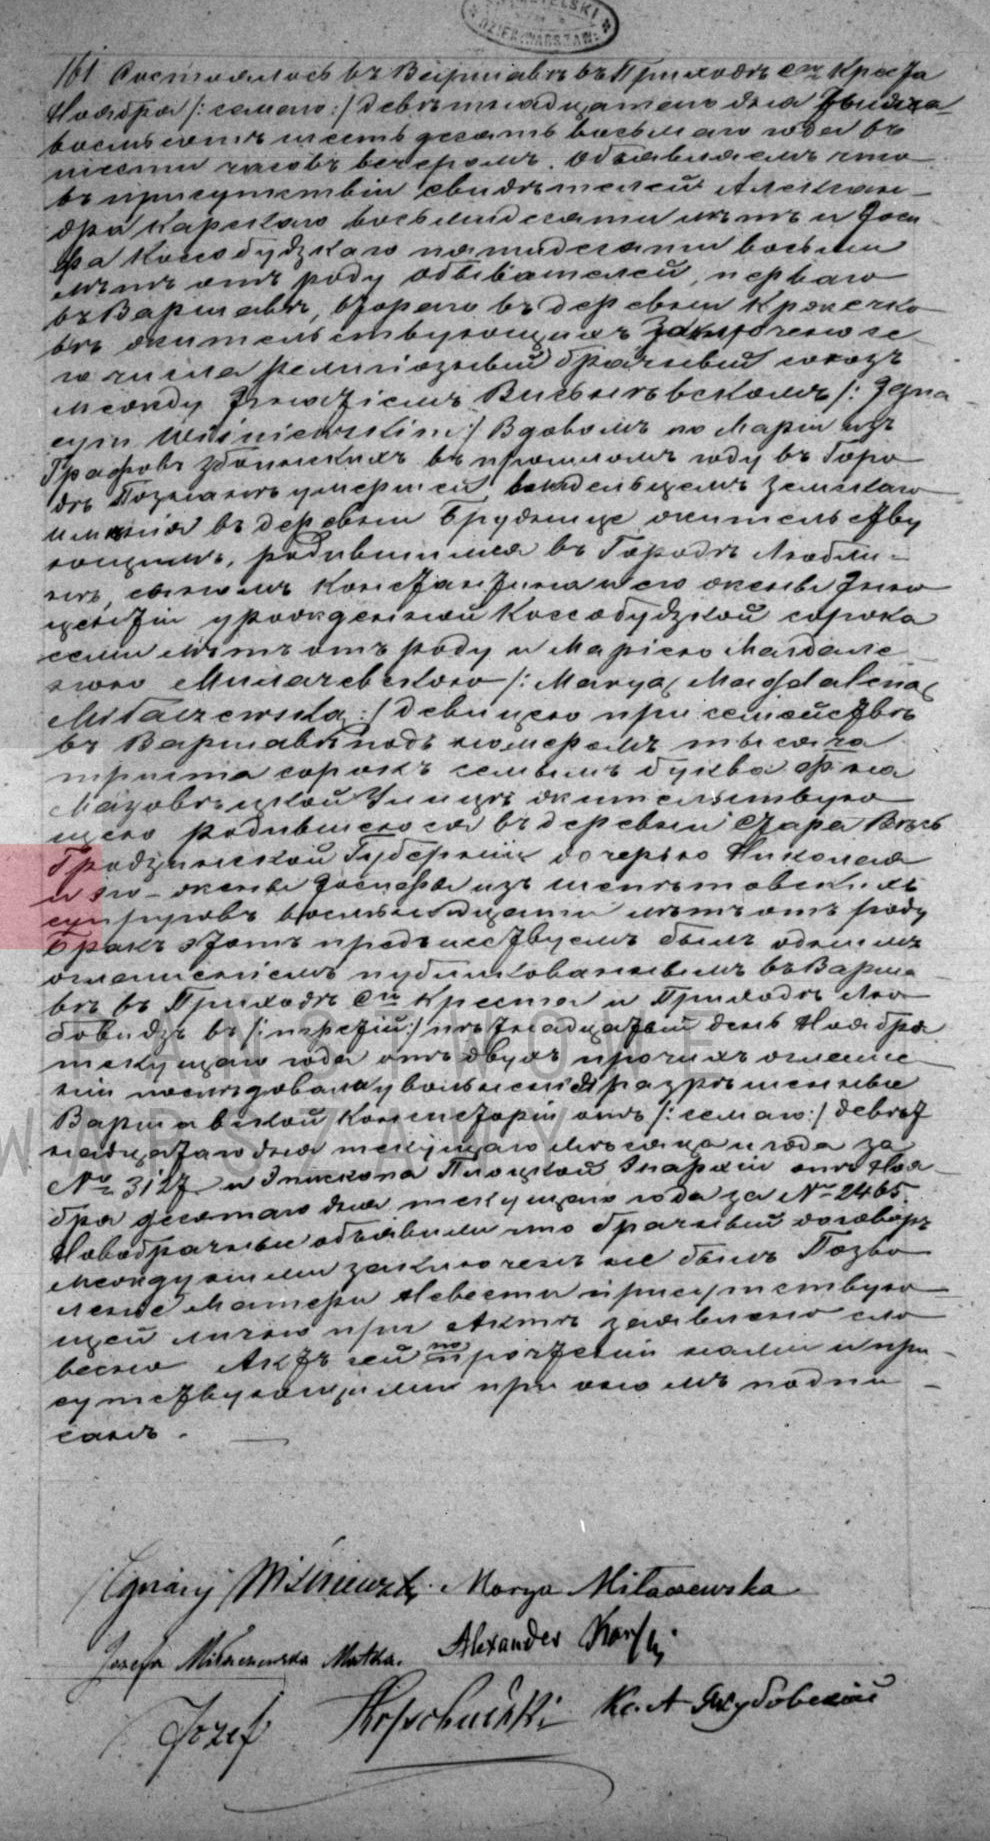 161 Состоялось въ Варшавѣ въ Приходѣ Св. Креста
Ноября /: семаго :/ девятнадцатаго дня тысяча
восемьсотъ шестьдесятъ восьмаго года въ
шесть часовъ вечеромъ. Объявляемъ что
въ присутствіи свидѣтелей Алексан-
дра Карскаго восьмидесяти лѣтъ и Іоси
фа Коссобудзкаго пятидесяти восьми
лѣтъ отъ роду обывателей, перваго
въ Варшавѣ, втораго въ деревни
вѣ жительствующихъ заключено се
го числа религіозный брачный союзъ
между Игнатіемъ Висьневскимъ /: Igna
cym Wiśniewskim :/ Вдовомъ по Маріи изъ
Графовъ въ прошломъ году въ Горо
дѣ Познанѣ умершей, владельцемъ земскаго
имѣнія въ деревни жительству
ющимъ, родившимся въ Городѣ Любли-
нѣ, сыномъ Константина и его жены Инно
центіи урожденной Коссобудзкой сорока
семи лѣтъ отъ роду и Маріею Магдале
ною Милачевскою /: Maryą Magdaleną
Miłaczewską :/ девицею при семействѣ
въ Варшавѣ подъ номеромъ тысяча
триста сорокъ седьмымъ буква Ф на
Мазовѣцкой Улицѣ жительствую
щею родившеюся въ деревни Стара Вѣсь
Гродзинской Губерніи дочерью Николая
и его жены Іосифы изъ Шепѣтовскихъ
супруговъ восемьнадцати лѣтъ отъ роду
Бракъ этотъ предшествуемъ былъ однимъ
оглашеніемъ публикованнымъ въ Варша
вѣ въ Приходѣ Св. Креста и Приходѣ Лю
бовидзъ въ пятнадцатый день Ноября
текущаго года отъ двухъ прочихъ оглаше
ній послѣдовала увольненіе разрѣшеніе
Варшавской Консисторіи отъ /: семаго :/ девят
надцатаго дня текущаго мѣсяца и года за
№ 3127 и Епископа Плоцкой Епархіи отъ Ноя
бря десятаго дня текущаго года за № 2465.
Новобрачные объявили что брачный договоръ
между ними заключенъ не былъ Позво
леніе Матери Невесты присутствую
щей лично при Актѣ заявлено сло
весно Актъ сей по прочтеніи нами и при-
сутствующими при ономъ подпи-
санъ.
Ignacy Wiśniewski. Marya Miłaczewska
Józefa Miłaczewska Matka. Alexander Karski
Józef Kossobudzki Кс. А Якубовский